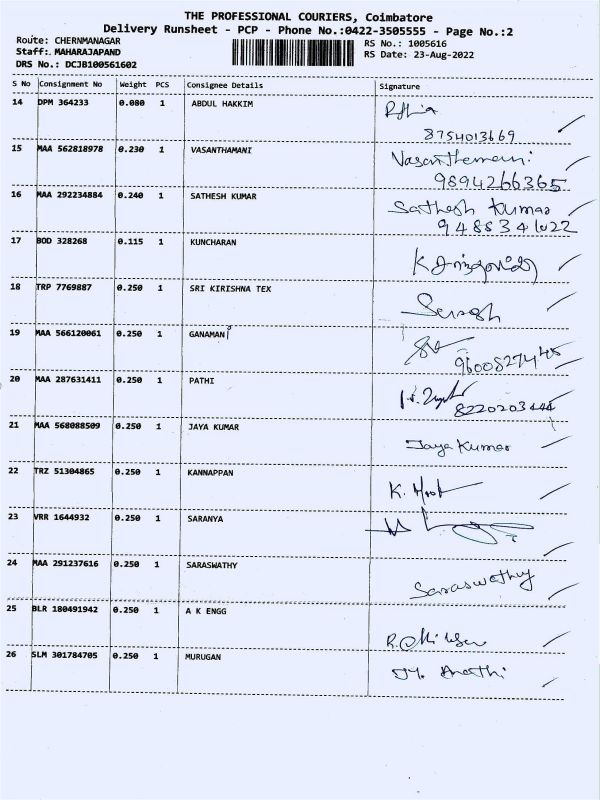 THE PROFESSIONAL COURIERS, Coimbatore
Delivery Runsheet - PCP - Phone No.:0422-3505555 - Page No.:2
Route: CHERNMANAGAR
RS No.: 1005616
Staff:. MAHARAJAPAND
RS Date: 23-Aug-2022
DRS No.: DCJB100561602
S No Consignment No Weight PCS Consignee Details Signature
14 DPM 364233 0.080 1 ABDUL HAKKIM
8754013669
15 MAA 562818978 0.230 1 VASANTHAMANI Vasanthamani
9894266365
16 MAA 292234884 0.240 1 SATHESH KUMAR Sathesh Kumar
9488341022
17 BOD 328268 0.115 1 KUNCHARAN
18 TRP 7769887 0.250 1 SRI KIRISHNA TEX
19 MAA 566120061 0.250 1 GANAMANI
9600827445
20 MAA 287631411 0.250 1 PATHI
8220203444
21 MAA 568088509 0.250 1 JAYA KUMAR Jaya Kumar
22 TRZ 51304865 0.250 1 KANNAPPAN
23 VRR 1644932 0.250 1 SARANYA
24 MAA 291237616 0.250 1 SARASWATHY Saraswathy
25 BLR 180491942 0.250 1 A K ENGG
26 SLM 301784705 0.250 1 MURUGAN